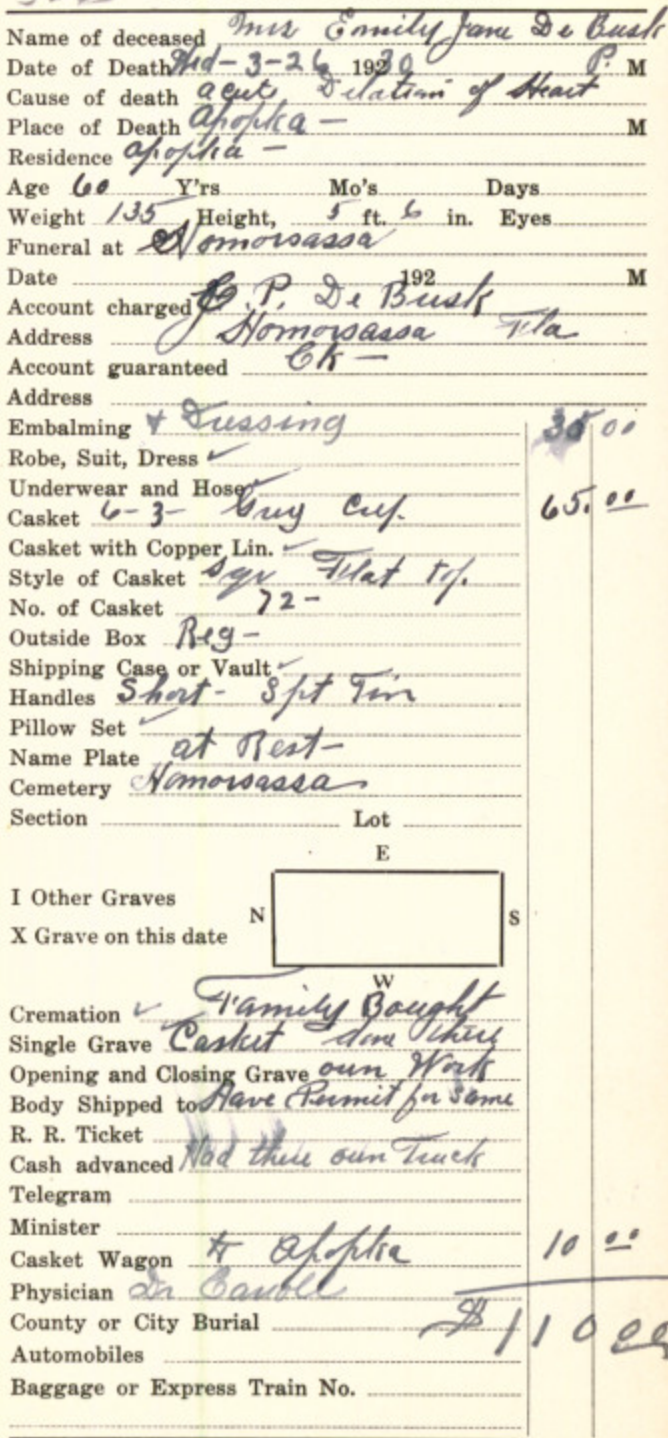 Name of deceased Mrs Emily Jane De Busk
Date of Death Wed - 3 - 26 1930 P. M
Cause of death acute Dilation of Heart
Place of Death Apopka - M
Residence Apopka -
Age 60 Y'rs Mo's Days
Weight 135 Height, 5 ft. 6 in. Eyes
Funeral at Homorsassa
Date 192 M
Account charged P. De Busk
Address Homorsassa Fla
Account guaranteed Ok -
Address
Embalming + Dressing 35 00
Robe, Suit, Dress ✓
Underwear and Hose ✓
Casket 6 - 3 - Grey Crep. 65.00
Casket with Copper Lin. ✓
Style of Casket Sqr Flat top.
No. of Casket 72 -
Outside Box Reg -
Shipping Case or Vault ✓
Handles Short - Tin
Pillow Set ✓
Name Plate at Rest -
Cemetery Homorsassa
Section Lot
E
I Other Graves
N S
X Grave on this date
W
Cremation ✓ Family Bought
Single Grave Casket done there
Opening and Closing Grave own Work
Body Shipped to Have Permit for Same
R. R. Ticket
Cash advanced Had there own Truck
Telegram
Minister
Casket Wagon to Apopka 10 00
Physician Dr
County or City Burial $110 00
Automobiles
Baggage or Express Train No.